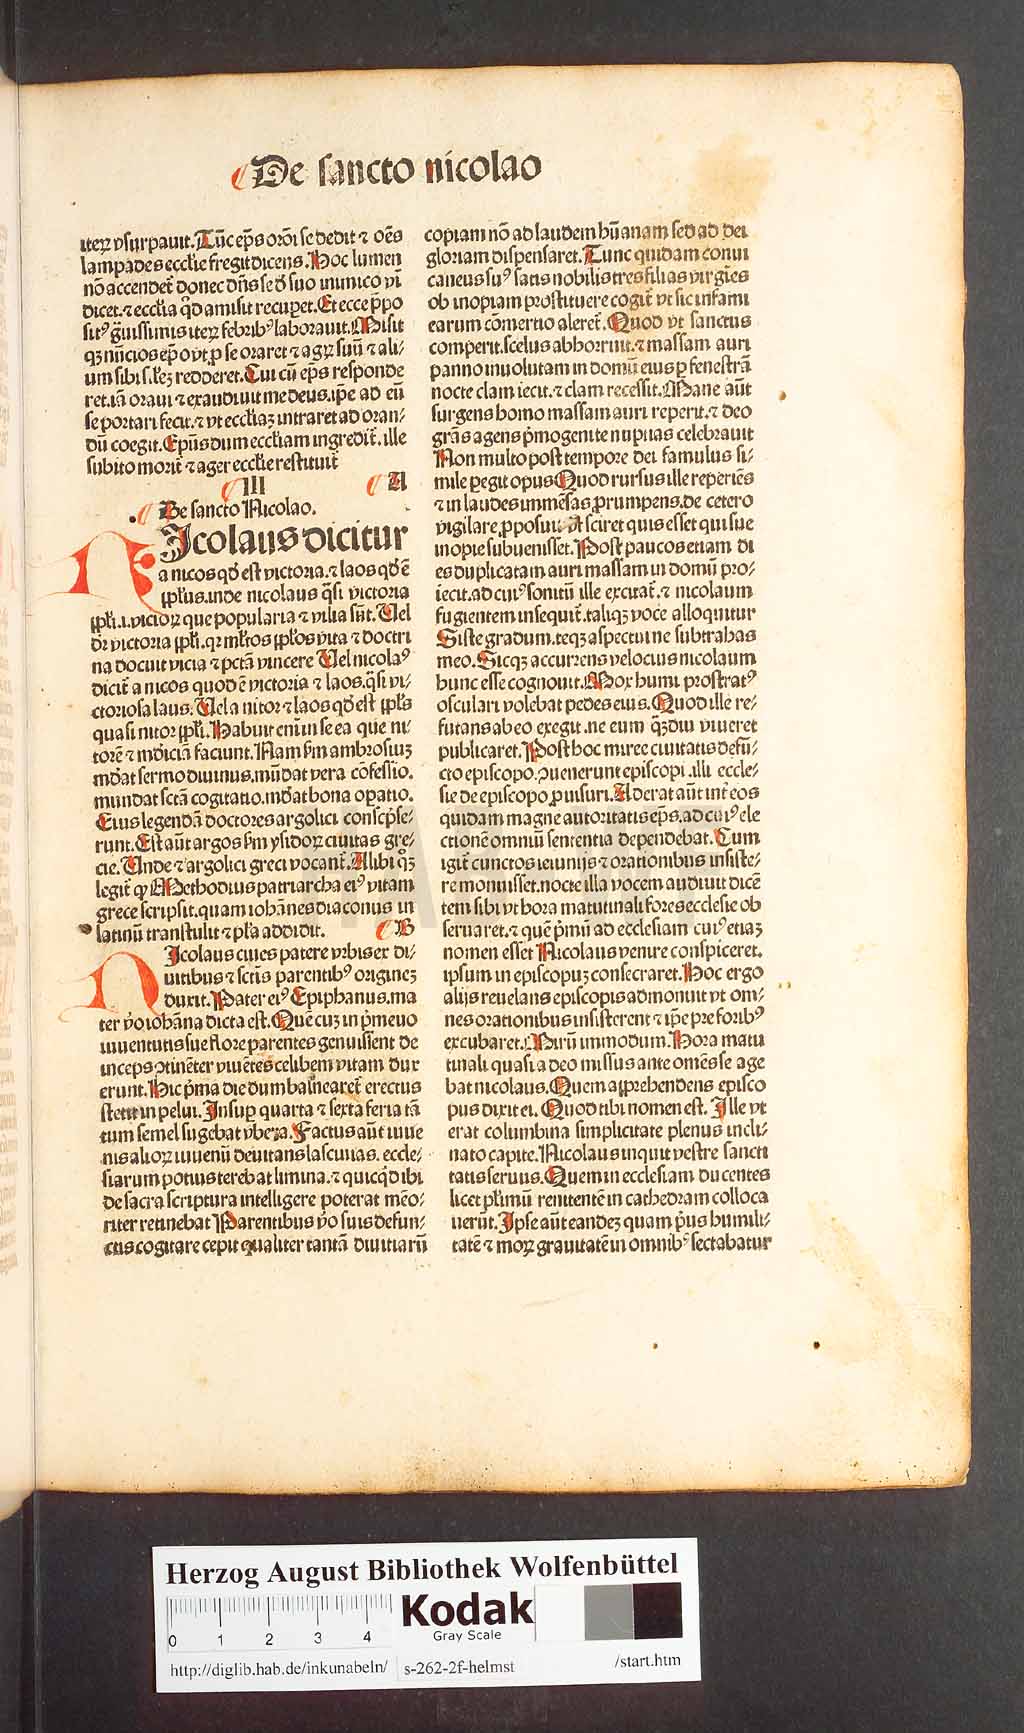 De sancto nicolao
iteꝝ vsurpauit. Tūc ep̄s or̄oi se dedit ⁊ oēs
lampades eccl̄ie fregit dicens. Hoc lumen
nō accendet᷑ donec dn̄s se d̄ suo inimico vī
dicet. ⁊ eccl̄ia qd̄ amisit recuꝑet. Et ecce p̄po
sitꝰ g̃uissimis iteꝝ febribꝰ laborauit. Misit
qꝫ nūcios ep̄o vt ꝓ se oraret ⁊ agꝝ suū ⁊ ali⸗
um sibi s̄lꝫ redderet. Cui cū ep̄s responde
ret. iā oraui ⁊ exaudiuit me deus. ip̄e ad eū
se portari fecit. ⁊ vt eccl̄iaꝫ intraret ad oran⸗
dū coegit. Ep̄us dum eccl̄iam ingredit᷑. ille
subito morit᷑ ⁊ ager eccl̄ie restituit᷑
III A
De sancto Nicolao.
NIcolaus dicitur
a nicos qd̄ est victoria. ⁊ laos qd̄ ē
ppl̄us. inde nicolaus q̄si victoria
ppl̄i. i. vicioꝝ que popularia ⁊ vilia sūt. Uel
dr̄ victoria ppl̄i. qꝛ ml̄tos ppl̄os vita ⁊ doctri
na docuit vicia ⁊ pctā vincere Uel nicolaꝰ
dicit᷑ a nicos quod ē victoria ⁊ laos. q̄si vi⸗
ctoriosa laus. Uel a nitor ⁊ laos qd̄ est ppl̄s
quasi nitor ppl̄i. Habuit em̄ in se ea que ni⸗
torē ⁊ mūdiciā faciunt. Nam sm̄ ambrosiuꝫ
mūdat sermo diuinus. mūdat vera cōfessio.
mundat sctā cogitatio. mūdat bona oꝑatio.
Eius legendā doctores argolici conscp̄se⸗
runt. Est aūt argos sm̄ ysidoꝝ ciuitas gre⸗
cie. Unde ⁊ argolici greci vocant᷑. Alibi qꝫ
legit᷑ ꝙ Methodius patriarcha eiꝰ vitam
grece scripsit. quam iohānes diaconus in
latinū transtulit ⁊ pl̄a addidit. B
NIcolaus ciues patere vrbis ex di⸗
uitibus ⁊ sctīs parentibꝰ origineꝫ
duxit. Pater eiꝰ Epiphanus. ma
ter v̄o iohāna dicta est. Quē cuꝫ in p̄meuo
iuuentutis sue flore parentes genuissent de
inceps ꝯtinēter viuētes celibem vitam dux
erunt. Hic p̄ma die dum balnearet᷑ erectus
stetit in pelui. Insuꝑ quarta ⁊ sexta feria tā
tum semel sugebat vbera. Factus aūt iuue
nis alioꝝ iuuenū deuitans lasciuias. eccle⸗
siarum potius terebat limina. ⁊ quicqd̄ ibi
de sacra scriptura intelligere poterat mēo⸗
riter retinebat Parentibus v̄o suis defun⸗
ctis cogitare cepit qualiter tantā diuitiarū
copiam nō ad laudem hūanam sed ad dei
gloriam dispensaret. Tunc quidam conui
caneus suꝰ satis nobilis tres filias virgīes
ob inopiam prostituere cogit᷑ vt sic infami
earum cōmertio aleret᷑. Quod vt sanctus
comperit. scelus abhorruit. ⁊ massam auri
panno inuolutam in domū eius ꝑ fenestrā
nocte clam iecit. ⁊ clam recessit. Mane aūt
surgens homo massam auri reperit. ⁊ deo
grās agens p̄mogenite nuptias celebrauit
Non multo post tempore dei famulus si⸗
mile ꝑegit opus Quod rursus ille reperiēs
⁊ in laudes immēsas ꝓrumpens. de cetero
vigilare ꝓposuit vt sciret quis esset qui sue
inopie subuenisset. Post paucos etiam di
es duplicatam auri massam in domū pro⸗
iecit. ad cuiꝰ sonitū ille excitat᷑. ⁊ nicolaum
fugientem insequit᷑. taliqꝫ voce alloquitur
Siste gradum. teqꝫ aspectui ne subtrahas
meo. Sicqꝫ accurrens velocius nicolaum
hunc esse cognouit. Mox humi prostratꝰ
osculari volebat pedes eius. Quod ille re⸗
futans ab eo exegit. ne eum qꝫdiu viueret
publicaret. Post hoc miree ciuitatis defū⸗
cto episcopo. ꝯuenerunt episcopi. illi eccle⸗
sie de episcopo ꝓuisuri. Aderat aūt int̄ eos
quidam magne autoritatis ep̄s. ad cuiꝰ ele
ctionē omniū sententia dependebat. Cum
igit᷑ cunctos ieiunijs ⁊ orationibus insiste⸗
re monuisset. nocte illa vocem audiuit dicē
tem sibi vt hora matutinali fores ecclesie ob
seruaret. ⁊ quē p̄mū ad ecclesiam cuiꝰ etiaꝫ
nomen esset Nicolaus venire conspiceret.
ipsum in episcopuꝫ consecraret. Hoc ergo
alijs reuelans episcopis admonuit vt om⸗
nes orationibus insisterent ⁊ ip̄e pre foribꝰ
excubaret. Mirū immodum. Hora matu
tinali quasi a deo missus ante omēs se age
bat nicolaus. Quem apprehendens episco
pus dixit ei. Quod tibi nomen est. Ille vt
erat columbina simplicitate plenus incli⸗
nato capite. Nicolaus inquit vestre sancti
tatis seruus. Quem in ecclesiam ducentes
licet pl̄imū renitentē in cathedram colloca
uerūt. Ipse aūt eandeꝫ quam p̄us humili⸗
tatē ⁊ moꝝ grauitatē in omnibꝰ sectabatur
HAB · WF
Herzog August Bibliothek Wolfenbüttel
0 1 2 3 4
Kodak
Gray Scale
http://diglib.hab.de/inkunabeln/ s-262-2f-helmst /start.htm